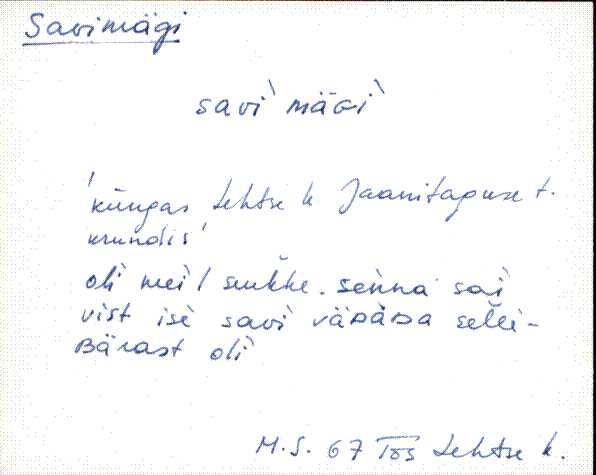 Savimägi
savì mäGì
'küngas Lehtse k Jaanitaguse t.
krundis'
olì meil sukke. senna sai
vist ise savi väDäDa selle-
Bärast olì
M.S. 67 Tõs Lehtse k.